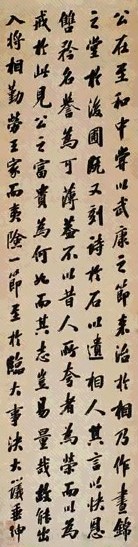 公在至和中嘗以武康之節來治於相乃作晝錦
之堂於後圃既又刻詩於石以遺相人其言以快恩
讐矜名譽為可薄蓋不以昔人所夸者為榮而以為
戒於此見公之富貴為何如而其志豈易量哉故能出
入將相勤勞王家而夷險一節至於臨大事決大議垂紳